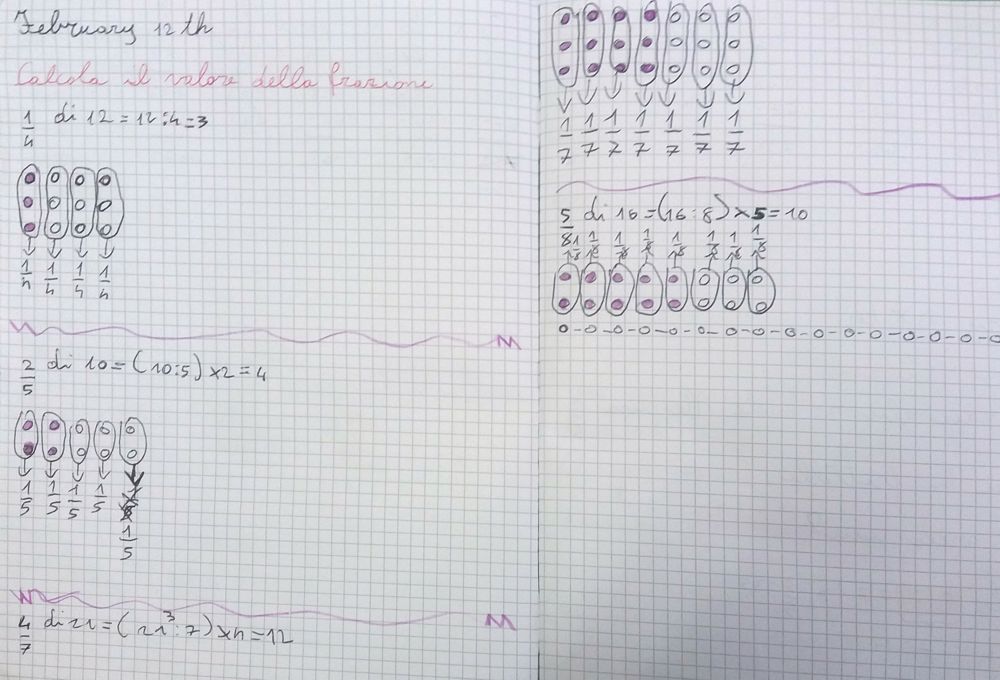 February 12th
Calcola il valore della frazione
1/4 di 12 = 12:4=3
1/4 1/4 1/4 1/4
2/5 di 10 = (10:5) x2 = 4
1/5 1/5 1/5 1/5
1/5
4/7 di 21 = (21:7) x4 = 12
3
1/7 1/7 1/7 1/7 1/7 1/7 1/7
5/8 di 16 = (16:8) x5 = 10
1/8 1/8 1/8 1/8 1/8 1/8 1/8 1/8